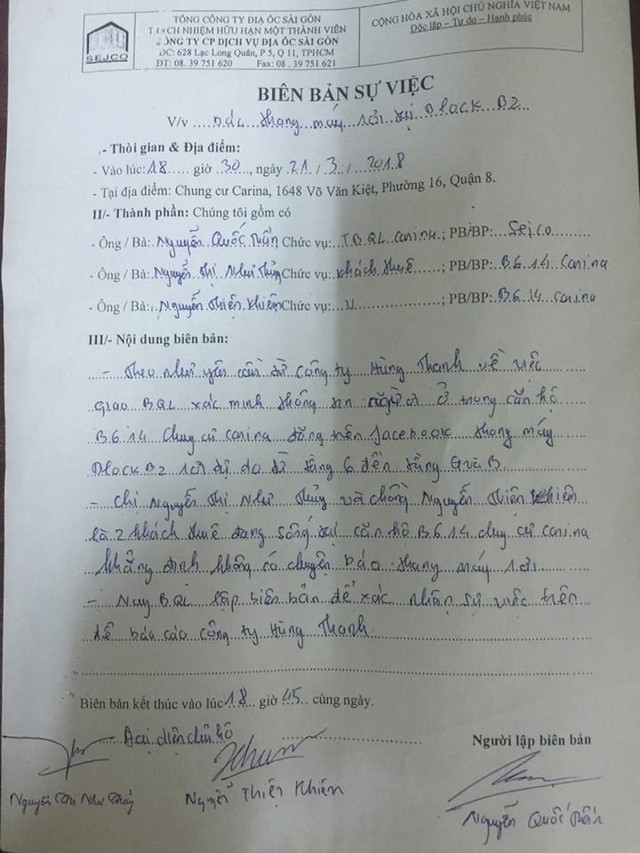 SEJCO
TỔNG CÔNG TY ĐỊA ỐC SÀI GÒN
TRÁCH NHIỆM HỮU HẠN MỘT THÀNH VIÊN
CÔNG TY CP DỊCH VỤ ĐỊA ỐC SÀI GÒN
ĐC: 628 Lạc Long Quân, P 5, Q 11, TPHCM
ĐT: 08. 39 751 620 Fax: 08 . 39 751 621
CỘNG HÒA XÃ HỘI CHỦ NGHĨA VIỆT NAM
Độc lập – Tự do – Hạnh phúc
BIÊN BẢN SỰ VIỆC
V/v thang máy tại Block B2
- Thời gian & Địa điểm:
- Vào lúc: 18 giờ 30, ngày 21 / 3 / 2018
- Tại địa điểm: Chung cư Carina, 1648 Võ Văn Kiệt, Phường 16, Quận 8.
II/- Thành phần: Chúng tôi gồm có
- Ông / Bà: Nguyễn Quốc Tuấn Chức vụ: T.BQL Carina; PB/BP: Sejco
- Ông / Bà: Nguyễn Thị Như Thủy Chức vụ: Khách thuê; PB/BP: B6.14 Carina
- Ông / Bà: Nguyễn Thiện Khiêm Chức vụ: ; PB/BP: B.6.14 Carina
III/- Nội dung biên bản:
- Theo như yêu cầu từ công ty Hùng Thanh về việc
giao BQL xác minh thông tin người ở trong căn hộ
B6.14 Chung cư Carina đăng trên facebook thang máy
Block B2 rơi tự do từ tầng 6 đến tầng
- Chị Nguyễn Thị Như Thủy và chồng Nguyễn Thiện Khiêm
là 2 khách thuê đang sống tại căn hộ B6.14 chung cư Carina
khẳng định không có chuyện báo thang máy rơi.
- Nay BQL lập biên bản để xác nhận sự việc trên
để báo cáo công ty Hùng Thanh.
Biên bản kết thúc vào lúc 18 giờ 45 cùng ngày.
Đại diện
Người lập biên bản
Nguyễn Thị Như Thủy
Nguyễn Thiện Khiêm
Nguyễn Quốc Tuấn